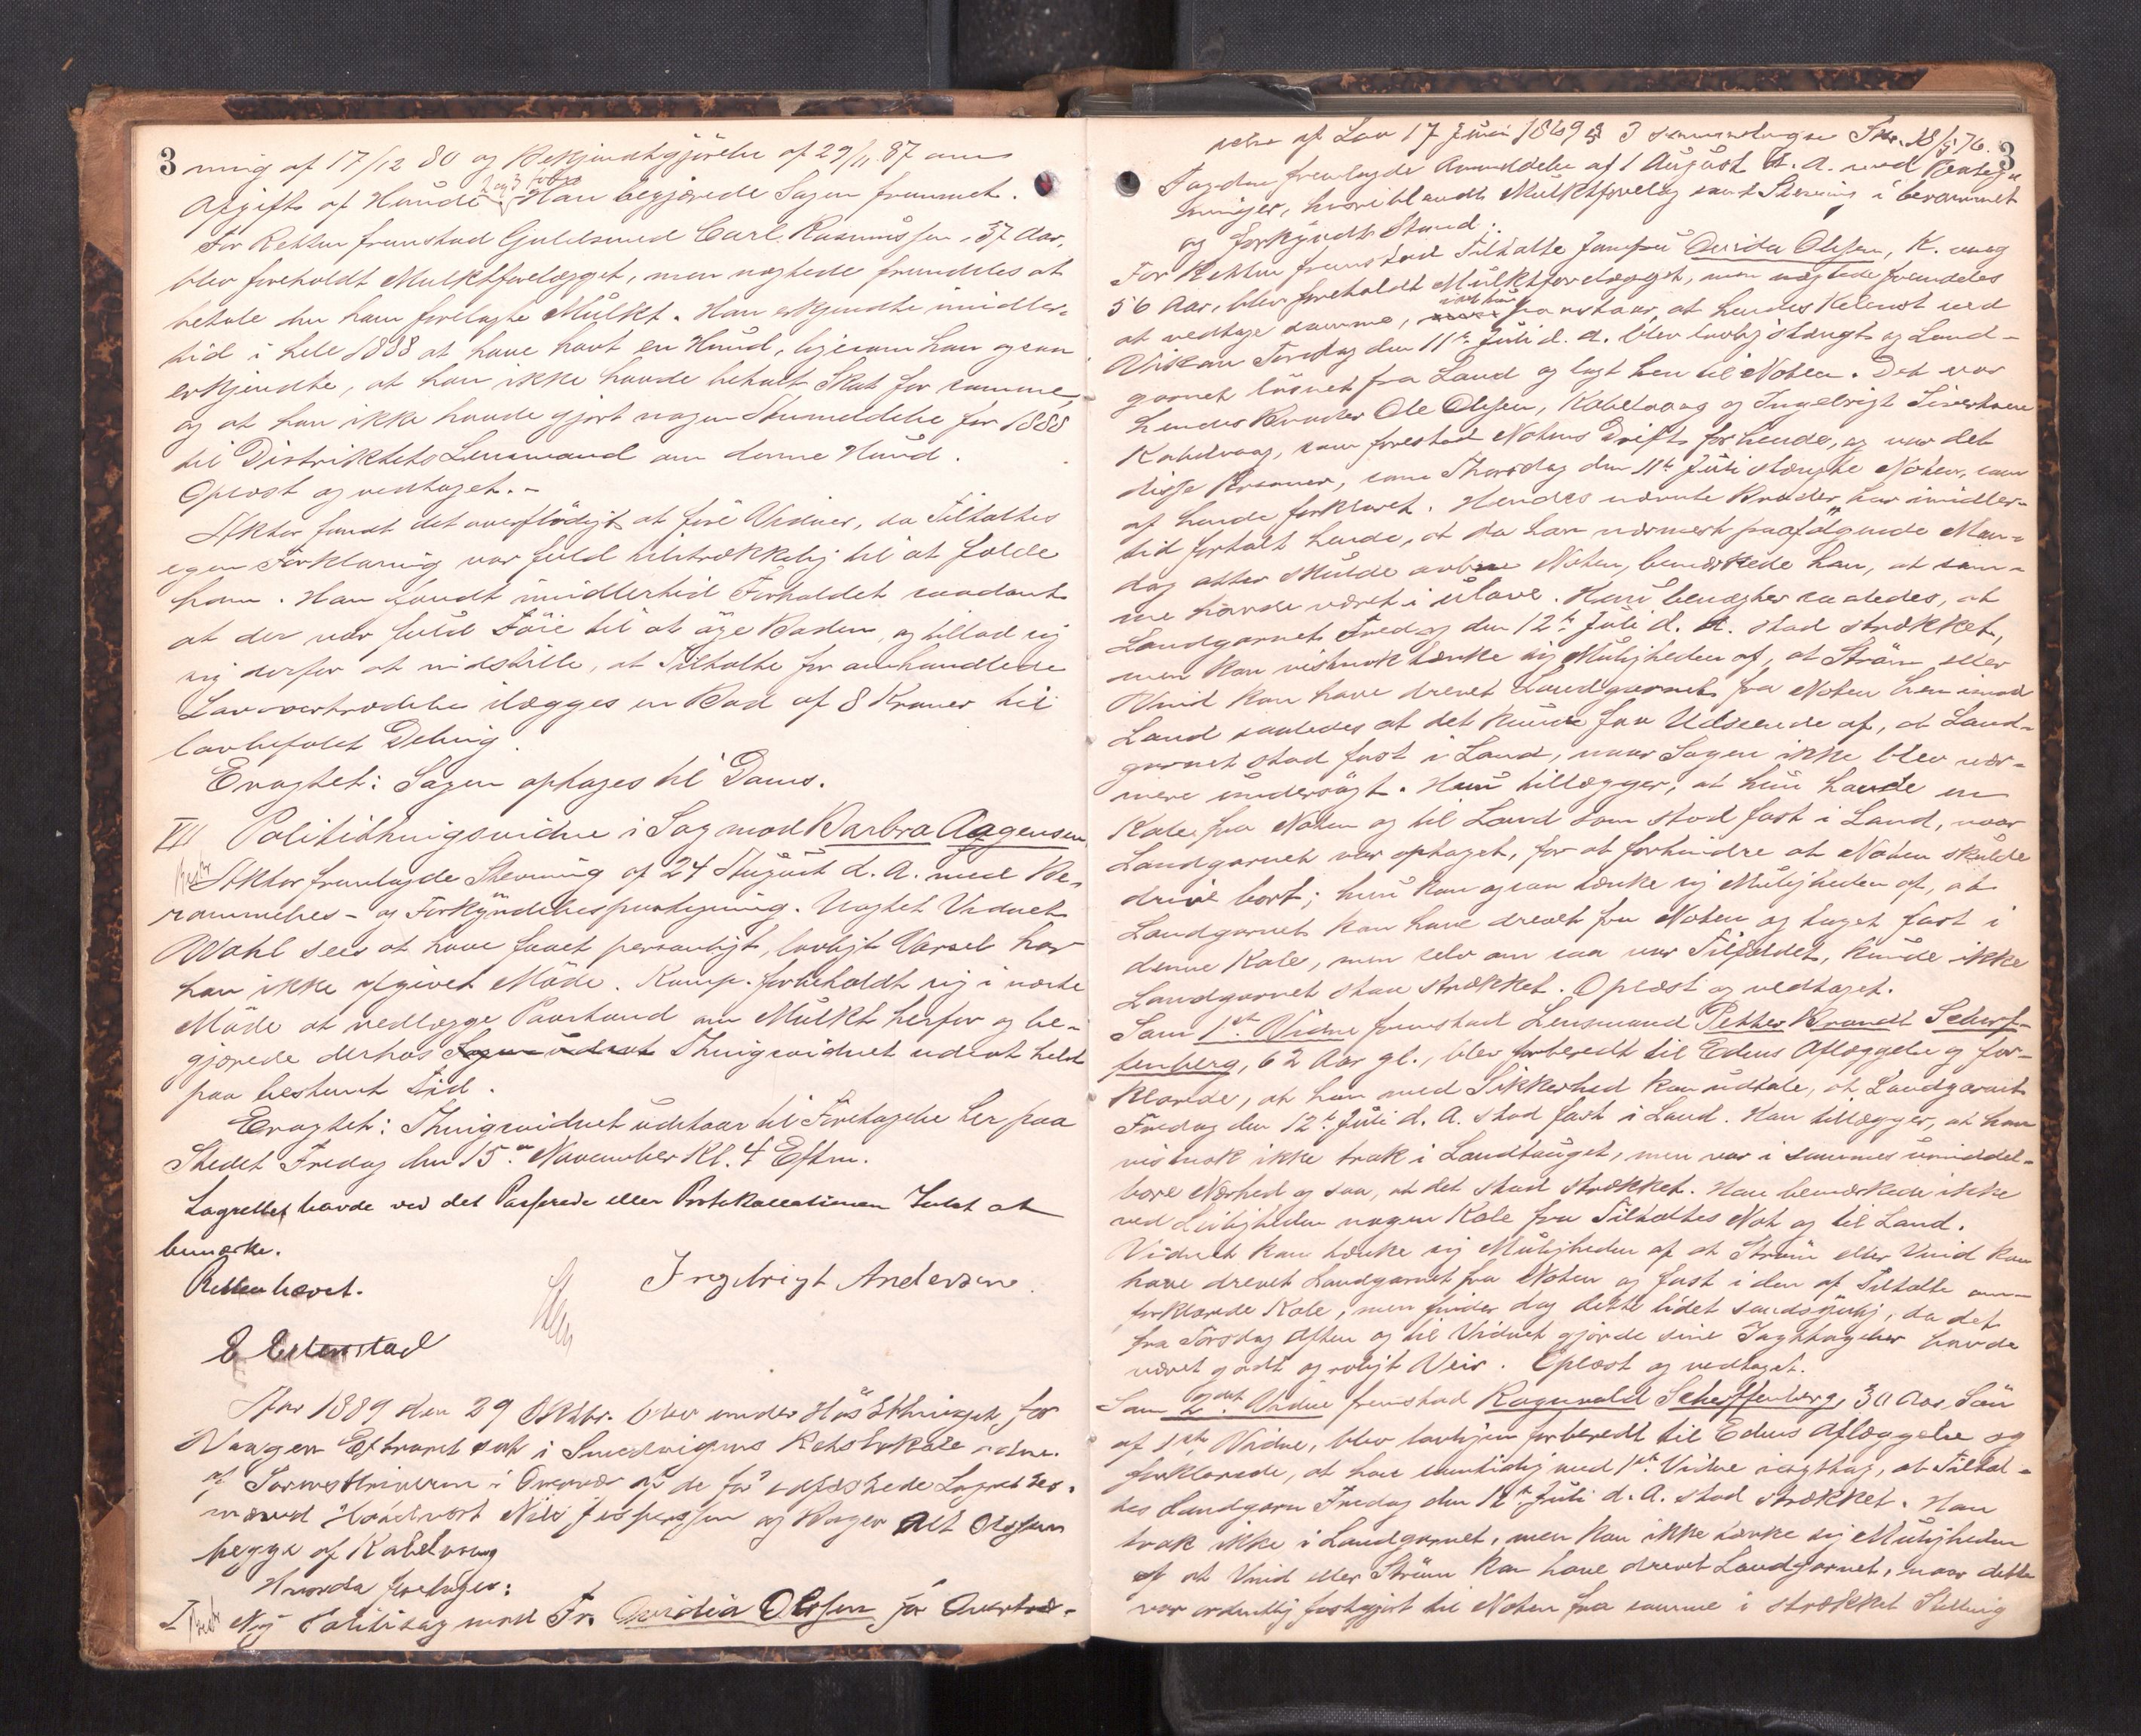 3
ning af 17/12 80 og Bekjendtgjörelse af 29/11 87 om
Afgift af Hunde. Han begjærede Sagen fremmet.
For Retten fremstod Guldsmed Carl Rasmussen, 37 Aar,
blev foreholdt Mulktforelægget, men nægtede fremdeles at
betale den ham forelagte Mulkt. Han erkjendte imidler-
tid i hele 1888 at have havt en Hund, ligesom han ogsaa
erkjendte, at han ikke havde betalt Skat for samme,
og at han ikke havde gjort nogen Anmeldelse for 1888
til Distriktets Lensmand om denne Hund.
Oplæst og vedtaget.-
Aktor fandt det overflödigt at före Vidner, da Tiltaltes
egen Forklaring var fuld tilstrækkelig til at fælde
ham. Han fandt imidlertid Forholdet saadant
at der var fuld Föie til at öge Boden, og tillod sig
sig derfor at indstille, at Tiltalte for omhandlede
Lovovertrædelse ilægges en Bod af 8 Kroner til
lovbefalet Deling.
Eragtet: Sagen optages til Doms.
VII Politithingsvidne i Sag mod Barbra Aagensen
Aktor fremlagde Stevning af 24 August d. A. med Be-
rammelses- og Forkyndelsespaategning. Uagtet Vidnet
Wahl sees at have faaet personligt, lovligt Varsel har
han ikke afgivet Möde. Komp. forbeholdt sig i næste
Möde at nedlægge Paastand om Mulkt herfor og be-
gjærede derhos Sagen udsat Thingvidnet udsat helst
paa bestemt Tid.
Eragtet: Thingvidnet udstaar til Foretagelse her paa
Stedet Fredag den 15de November Kl. 4 Eftm.
Lagrettet havde ved det Passerede eller Protokollationen Intet at
bemærke.
Retten hævet.
Ingebrigt Andersen
E Edenstad
Aar 1889 den 29 Oktbr. blev under Höstthinget for
Vaagen Extraret sat i Svolværgens Retslokale
af Sorenskriveren i Overvær af de för edfæstede Lagrettes-
mænd Nils Jespersen og Alt Olsen
begge af Kabelvaag
Hvorda foretages:
I Ny Politisag mod Fr. Ovidia Olsen for Overtræ-
3
delse af Lov 17 Juni 1869 § 3 sammenlagn 18/5 76.
Fogden fremlagde Anmeldelse af 1 August d. A. med Paateg-
ninger, hvoriblandt Mulktforelæg samt Stevning i berammet
og forkyndt Stand.
For Retten fremstod Tiltalte Jomfru Ovida Olsen, K. vaag
56 Aar, blev foreholdt Mulktforelægget, men nægtede fremdeles
at vedtage samme, idet hun paastaar, at hendes Kalenot ved
Torsdag den 11te Juli d. A. blev lovlig stængt og Land-
garnet lösnet fra Land og lagt hen til Noten. Det var
hendes Broder Ole Olsen, Kabelvaag og Ingebrigt Sivertsen
Kabelvaag, som forestod Notens Drift for hende, og var det
disse Personer, som Thorsdag den 11te Juli stængte Noten, som
af hende forklaret. Hendes nævnte Broder har imidler-
tid fortalt hende, at da han nærmest paafölgende Man-
dag atter skulde Noten, bemærkede han, at sam-
me havde været i ulave. Hun benægter saaledes, at
Landgarnet Fredag den 12te Juli d. A. stod strækket,
men kan vistnok tænke sig Muligheden af, at Ström eller
Vind kan have drevet Landgarnet fra Noten hen imod
Land saaledes at det kunde faa Udseende af, at Land-
garnet stod fast i Land, naar Sagen ikke blev nær-
mere undersögt. Hun tillægger, at hun havde en
Kale fra Noten og til Land som stod fast i Land, naar
Landgarnet var optaget, for at forhindre at Noten skulde
drive bort; hun kan ogsaa tænke sig Muligheden af, at
Landgarnet kan have drevet fra Noten og taget fast i
denne Kale, men selv om saa var Tilfældet, kunde ikke
Landgarnet staa strækket. Oplæst og vedtaget.
Som 1st Vidne fremstod Lensmand Petter Brandt Scharf-
fenberg, 62 Aar gl., blev forberedt til Edens Aflæggelse og for-
klarede, at han med Sikkerhed kan udtale, at Landgarnet
Fredag den 12te Juli d. A. stod fast i Land. Han tillægger, at han
vistnok ikke trak i Landtauget, men var i sammes umiddel-
bare Nærhed og saa, at det stod strækket. Han bemærkede ikke
ved Leiligheden nogen Kale fra Tiltaltes Not og til Land.
Vidnet kan tænke sig Muligheden af at Ström eller Vind kan
have drevet Landgarnet fra Noten og fast i den af Tiltalte om-
forklarede Kale; men finder dog dette lidet sandsynlig, da det
fra Torsdag Aften og til Vidnet gjorde sine Iagttagelser havde
været godt og roligt Veir. Oplæst og vedtaget.
Som 2det Vidne fremstod Ragnvald Scharffenberg, 30 Aar, Sön
af 1ste Vidne, blev lovligen forberedt til Edens Aflæggelse og
forklarede, at han samtidig med 1ste Vidne iagttog, at Tiltal-
tes Landgarn Fredag den 12te Juli d. A. stod strækket. Han
trak ikke i Landgarnet, men kan ikke tænke sig Muligheden
af at Vind eller Ström kan have drevet Landgarnet, naar dette
var ordentlig fastgjort til Noten fra samme i strækket Stilling